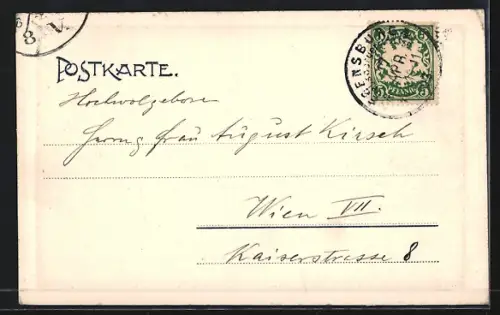 8 V
GENSBU
5 5
PFENNIG
POSTKARTE.
Hochwolgeboren
Frau August Kirsch
Wien VII.
Kaiserstrasse 8